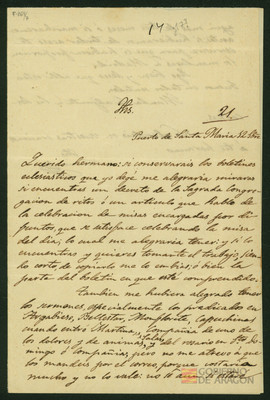 Jhs.
21
Puerto de Santa Maria
Querido hermano: si conservarais los boletines
eclesiasticos que yo dejé me alegraria miraras
si encuentras un decreto de la Sagrada Congre-
gacion de ritos ó un articulo que habla de
la celebracion de misas encargadas por di-
funtos, que se satisface celebrando la misa
del dia; lo cual me alegraria tener; y si lo
encuentras y quieres tomarte el trabajo, sien-
do corto, de copiarlo me lo embias; ó bien la
parte del boletin en que esté comprendido.
Tambien me hubiera alegrado tener
los sermones especialmente los predicados en
Ballestar,
cuando entré Martina, Compañia de uno de
los dolores y de animas, del rosario en Sto. Do-
mingo ó Compañias pero no me atrevo á que
los mandeis por el correo porque costaria
mucho y no lo vale: no lo
GOBIERNO
DE ARAGON